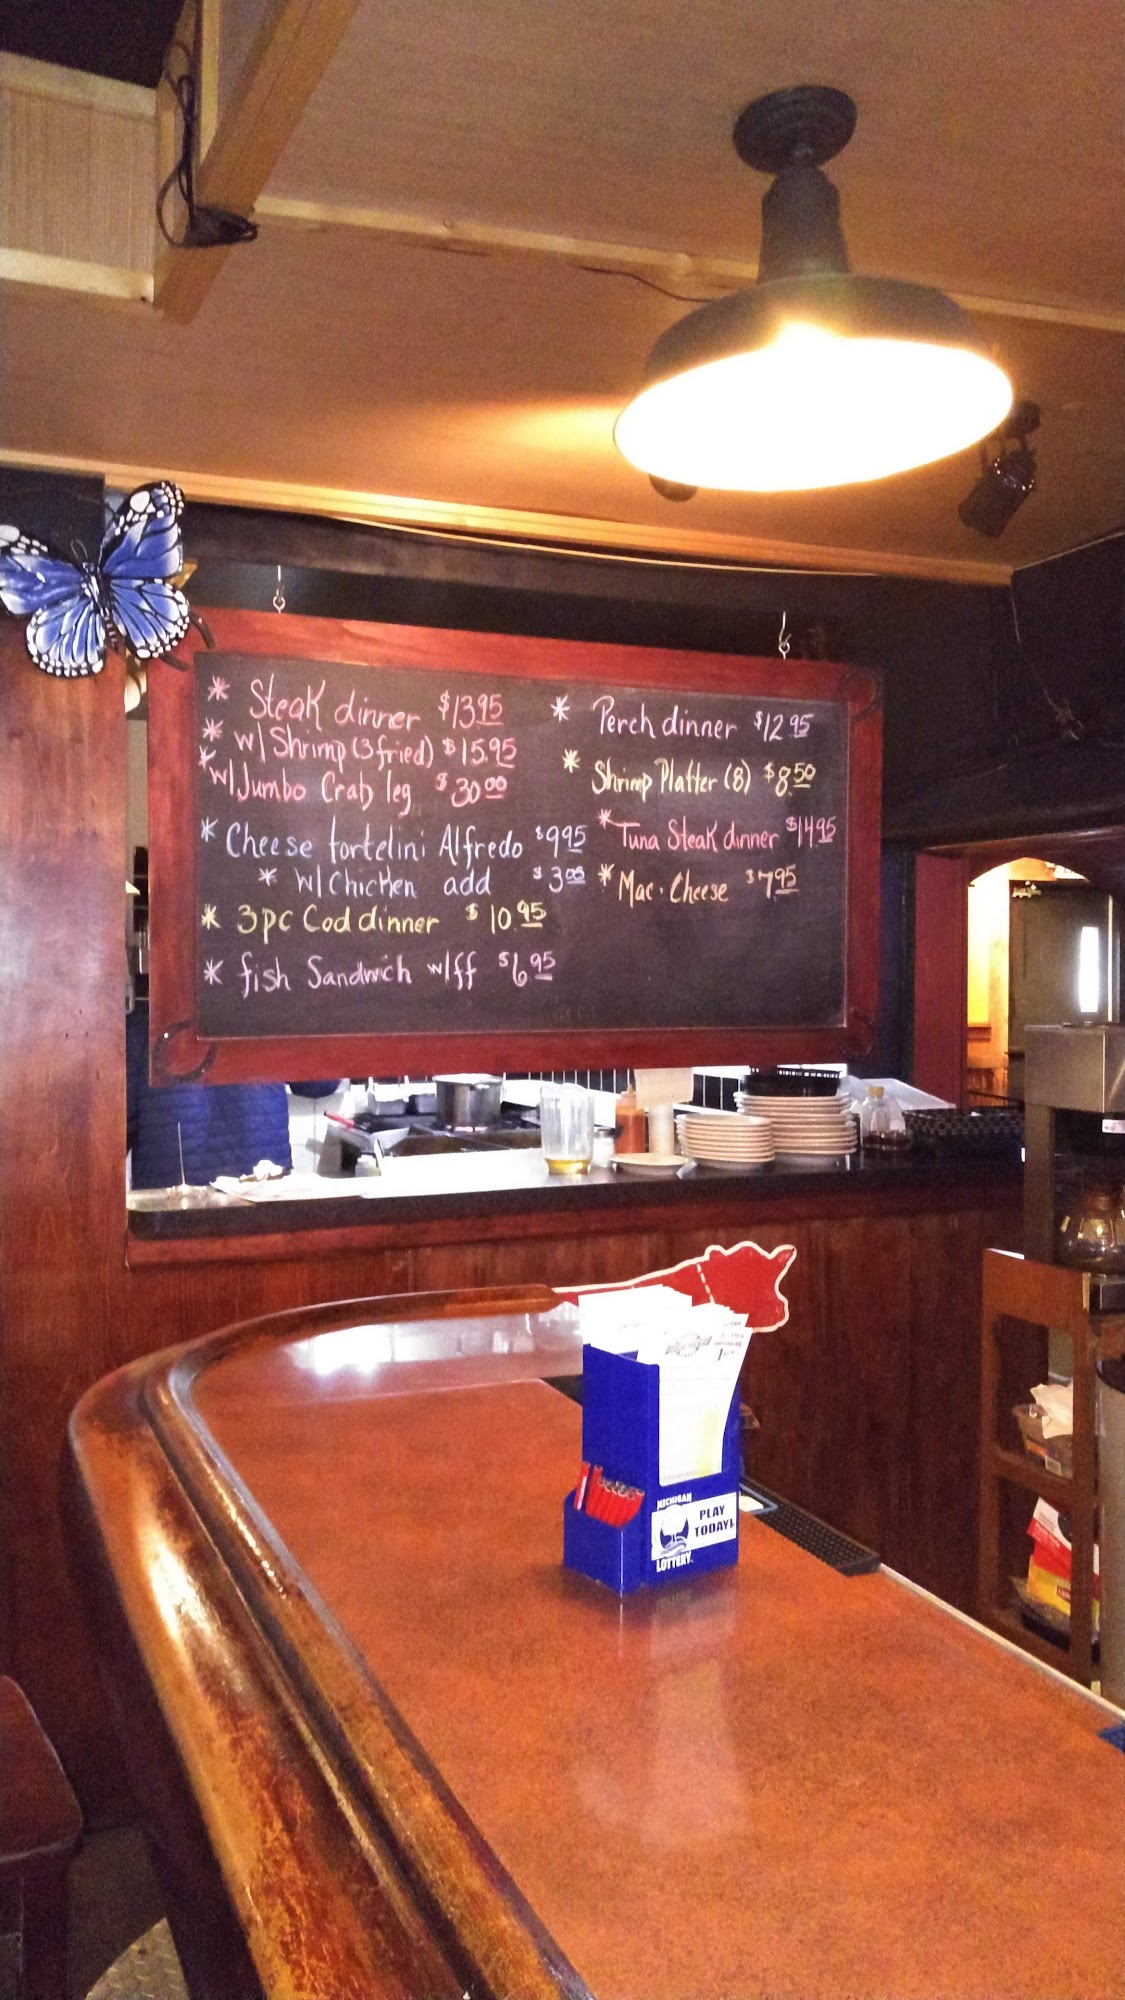 * Steak dinner $13.95
* w/ Shrimp (3 fried) $15.95
* w/ Jumbo Crab leg $30.00
* Cheese tortelini Alfredo $9.95
* w/ Chicken add $3.00
* 3pc Cod dinner $10.95
* fish Sandwich w/ff $6.95
* Perch dinner $12.95
* Shrimp Platter (8) $8.50
* Tuna Steak dinner $14.95
* Mac. Cheese $7.95
MICHIGAN
LOTTERY
PLAY
TODAY!